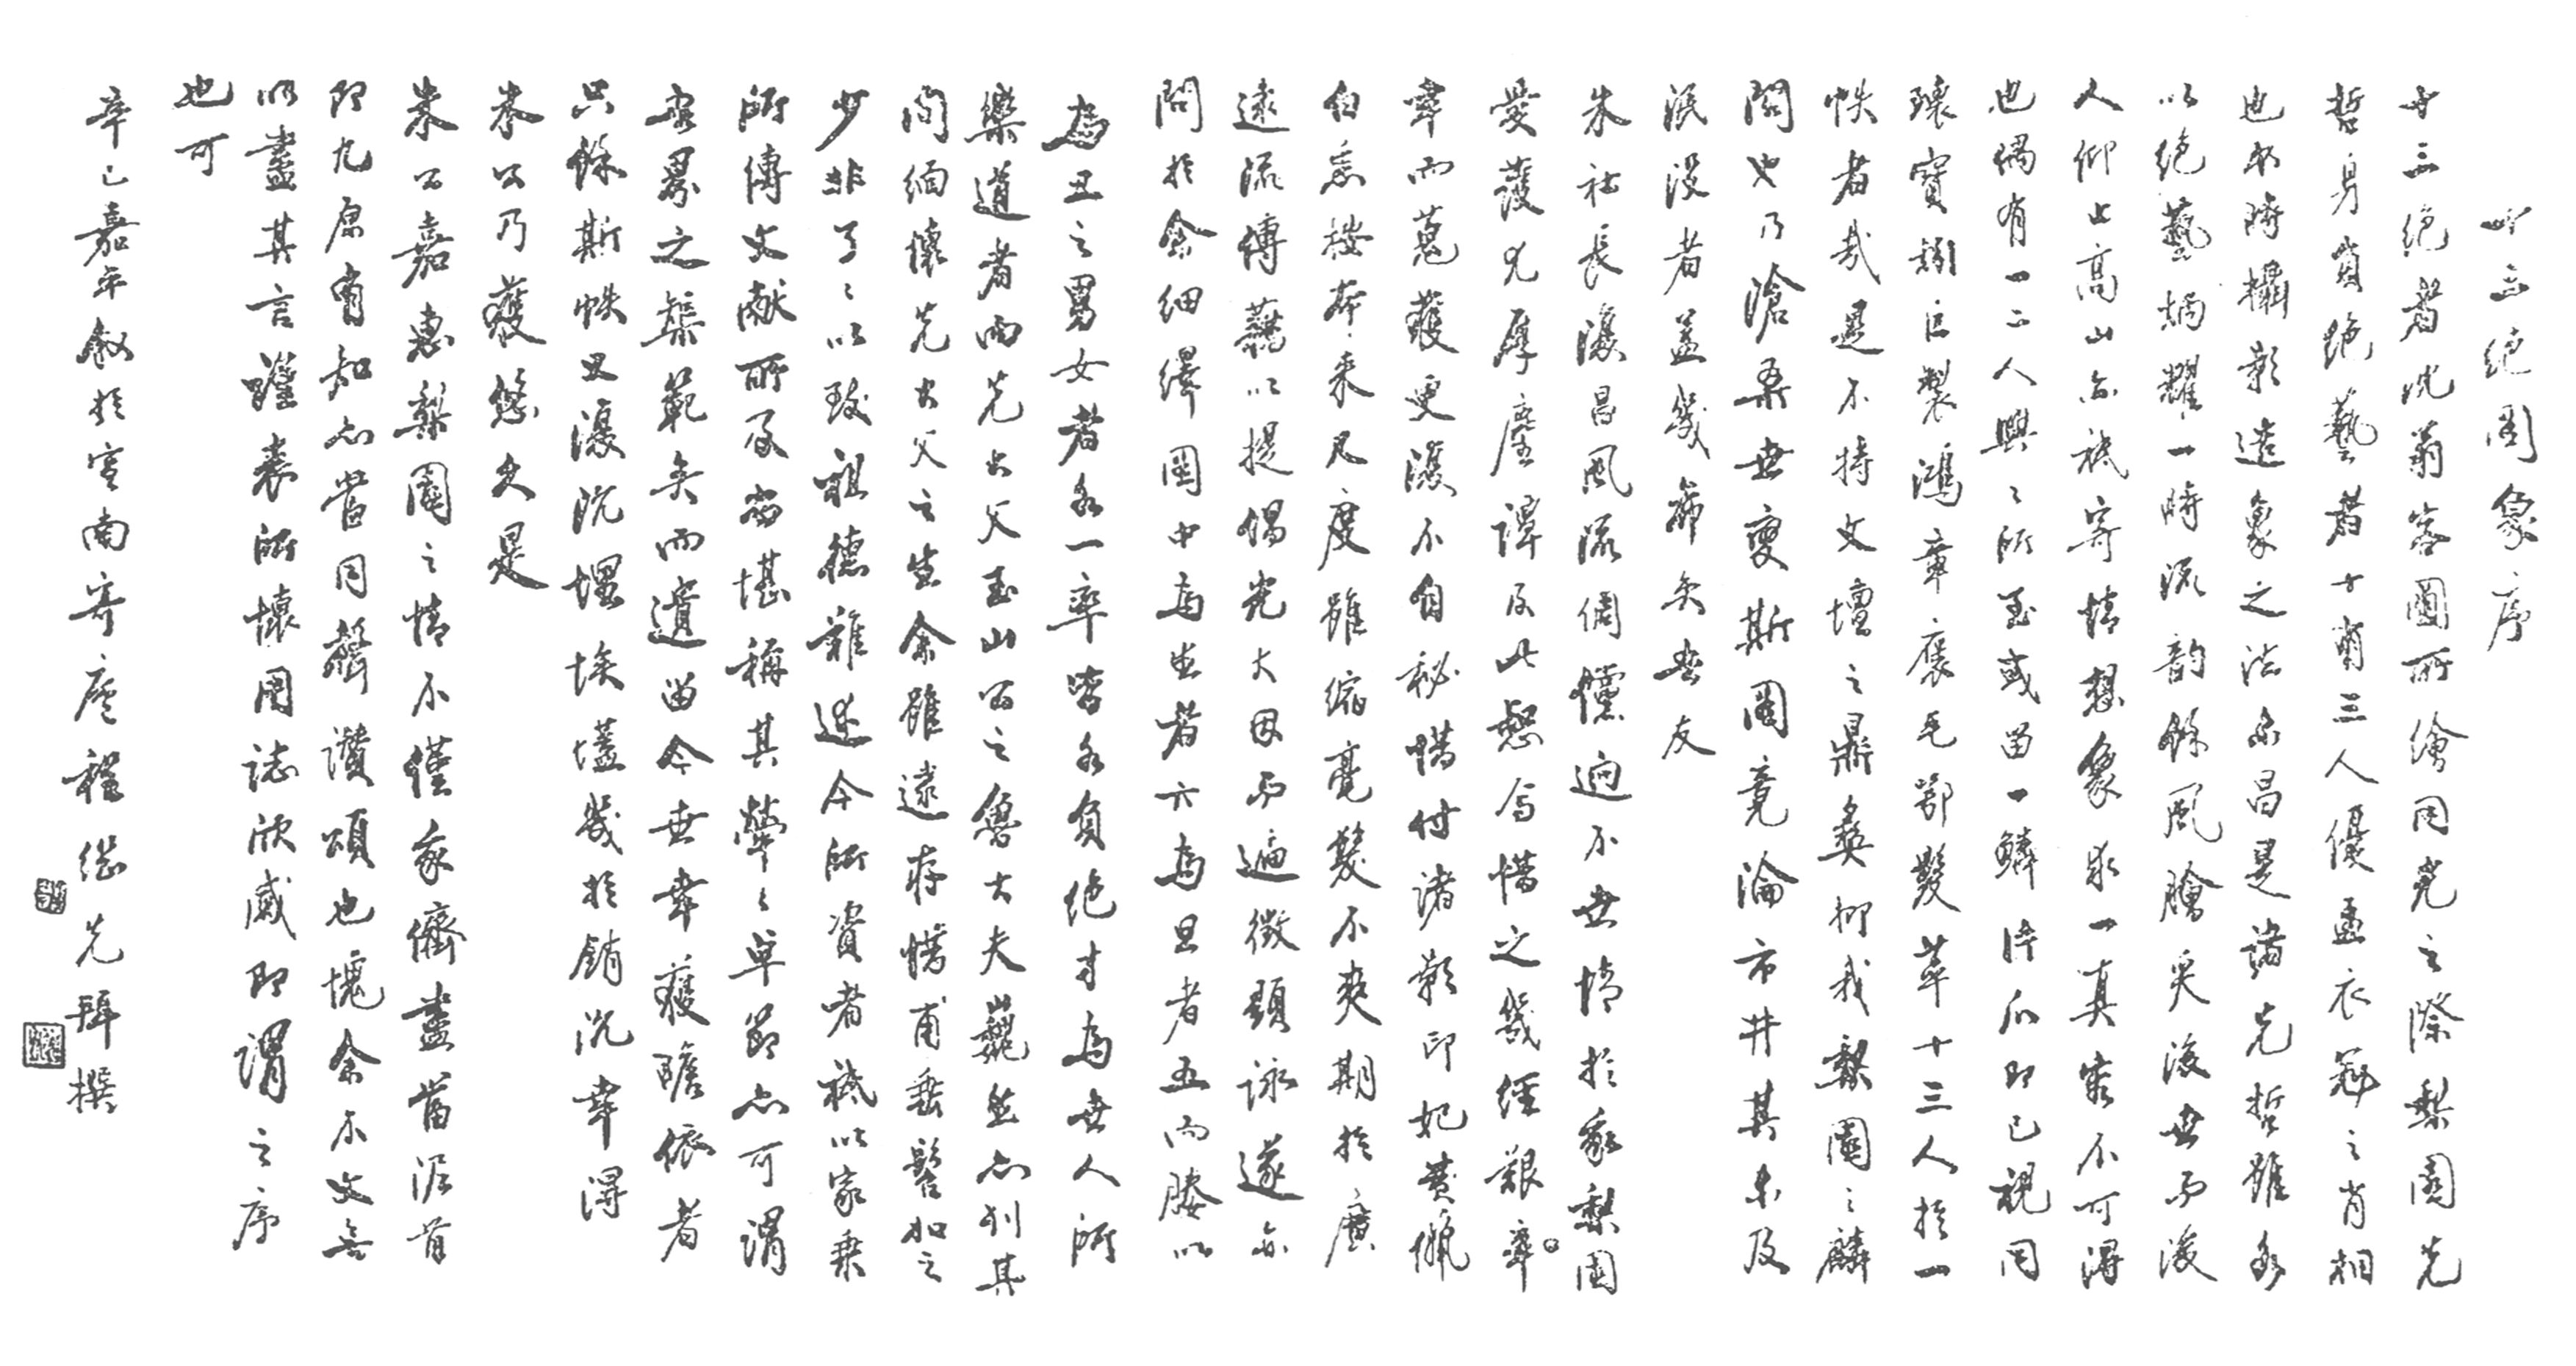 十三绝图象序
十三绝者沈蓊客圖所繪同光之際梨園先
哲身負绝藝者十有三人優孟衣冠之肖相
也尔時攝影造象之法未昌是諸先哲雖各
以绝藝炳耀一時流韵餘風膾炙後世而後
人仰止高山亦祗寄情想象求一真寀不可得
也偶有一二人興之所至或留一鱗片爪即已視同
瓌寶矧巨製鴻章褒毛鄂髮萃十三人於一
帙者哉是不特文壇之鼎彝抑我梨園之麟
閣也乃滄桑世變斯圖竟淪市井其未及
泯没者盖幾希矣世友
朱社長復昌風流倜儻迥不世情於我梨園
愛護尤厚塵譚及此恝焉惜之幾經艱率
幸而蒐獲更復不自秘惜付諸影印妃黄儷
白悉按本来尺度雖縮毫髮不爽期於廣
遠流傳藉以提倡光大因而遍徵題詠遂亦
問於余細繹圖中為生者六為旦者五而媵以
為丑之男女者各一率皆各負绝才為世人所
樂道者而先大父玉山公之魯大夫巍然亦列其
間緬懷先大父之生余雖逮存惜甫垂髫加之
少非了了以致祖德難述今所資者祗以家乘
所傳文献所及當堪稱其犖犖卓節亦可謂
寀畧之榘範矣而遺留今世幸獲瞻依者
只餘斯帙又復沉埋埃壒幾於銷沉幸得
朱公乃獲悠久是
朱公嘉惠梨園之情不僅我儕盡當泥首
即九原有知亦當同聲讚頌也愧余不文無
以盡其言謹表所懷用誌欣感即謂之序
也可
辛巳嘉平叙於宣南寄廬程继先拜撰